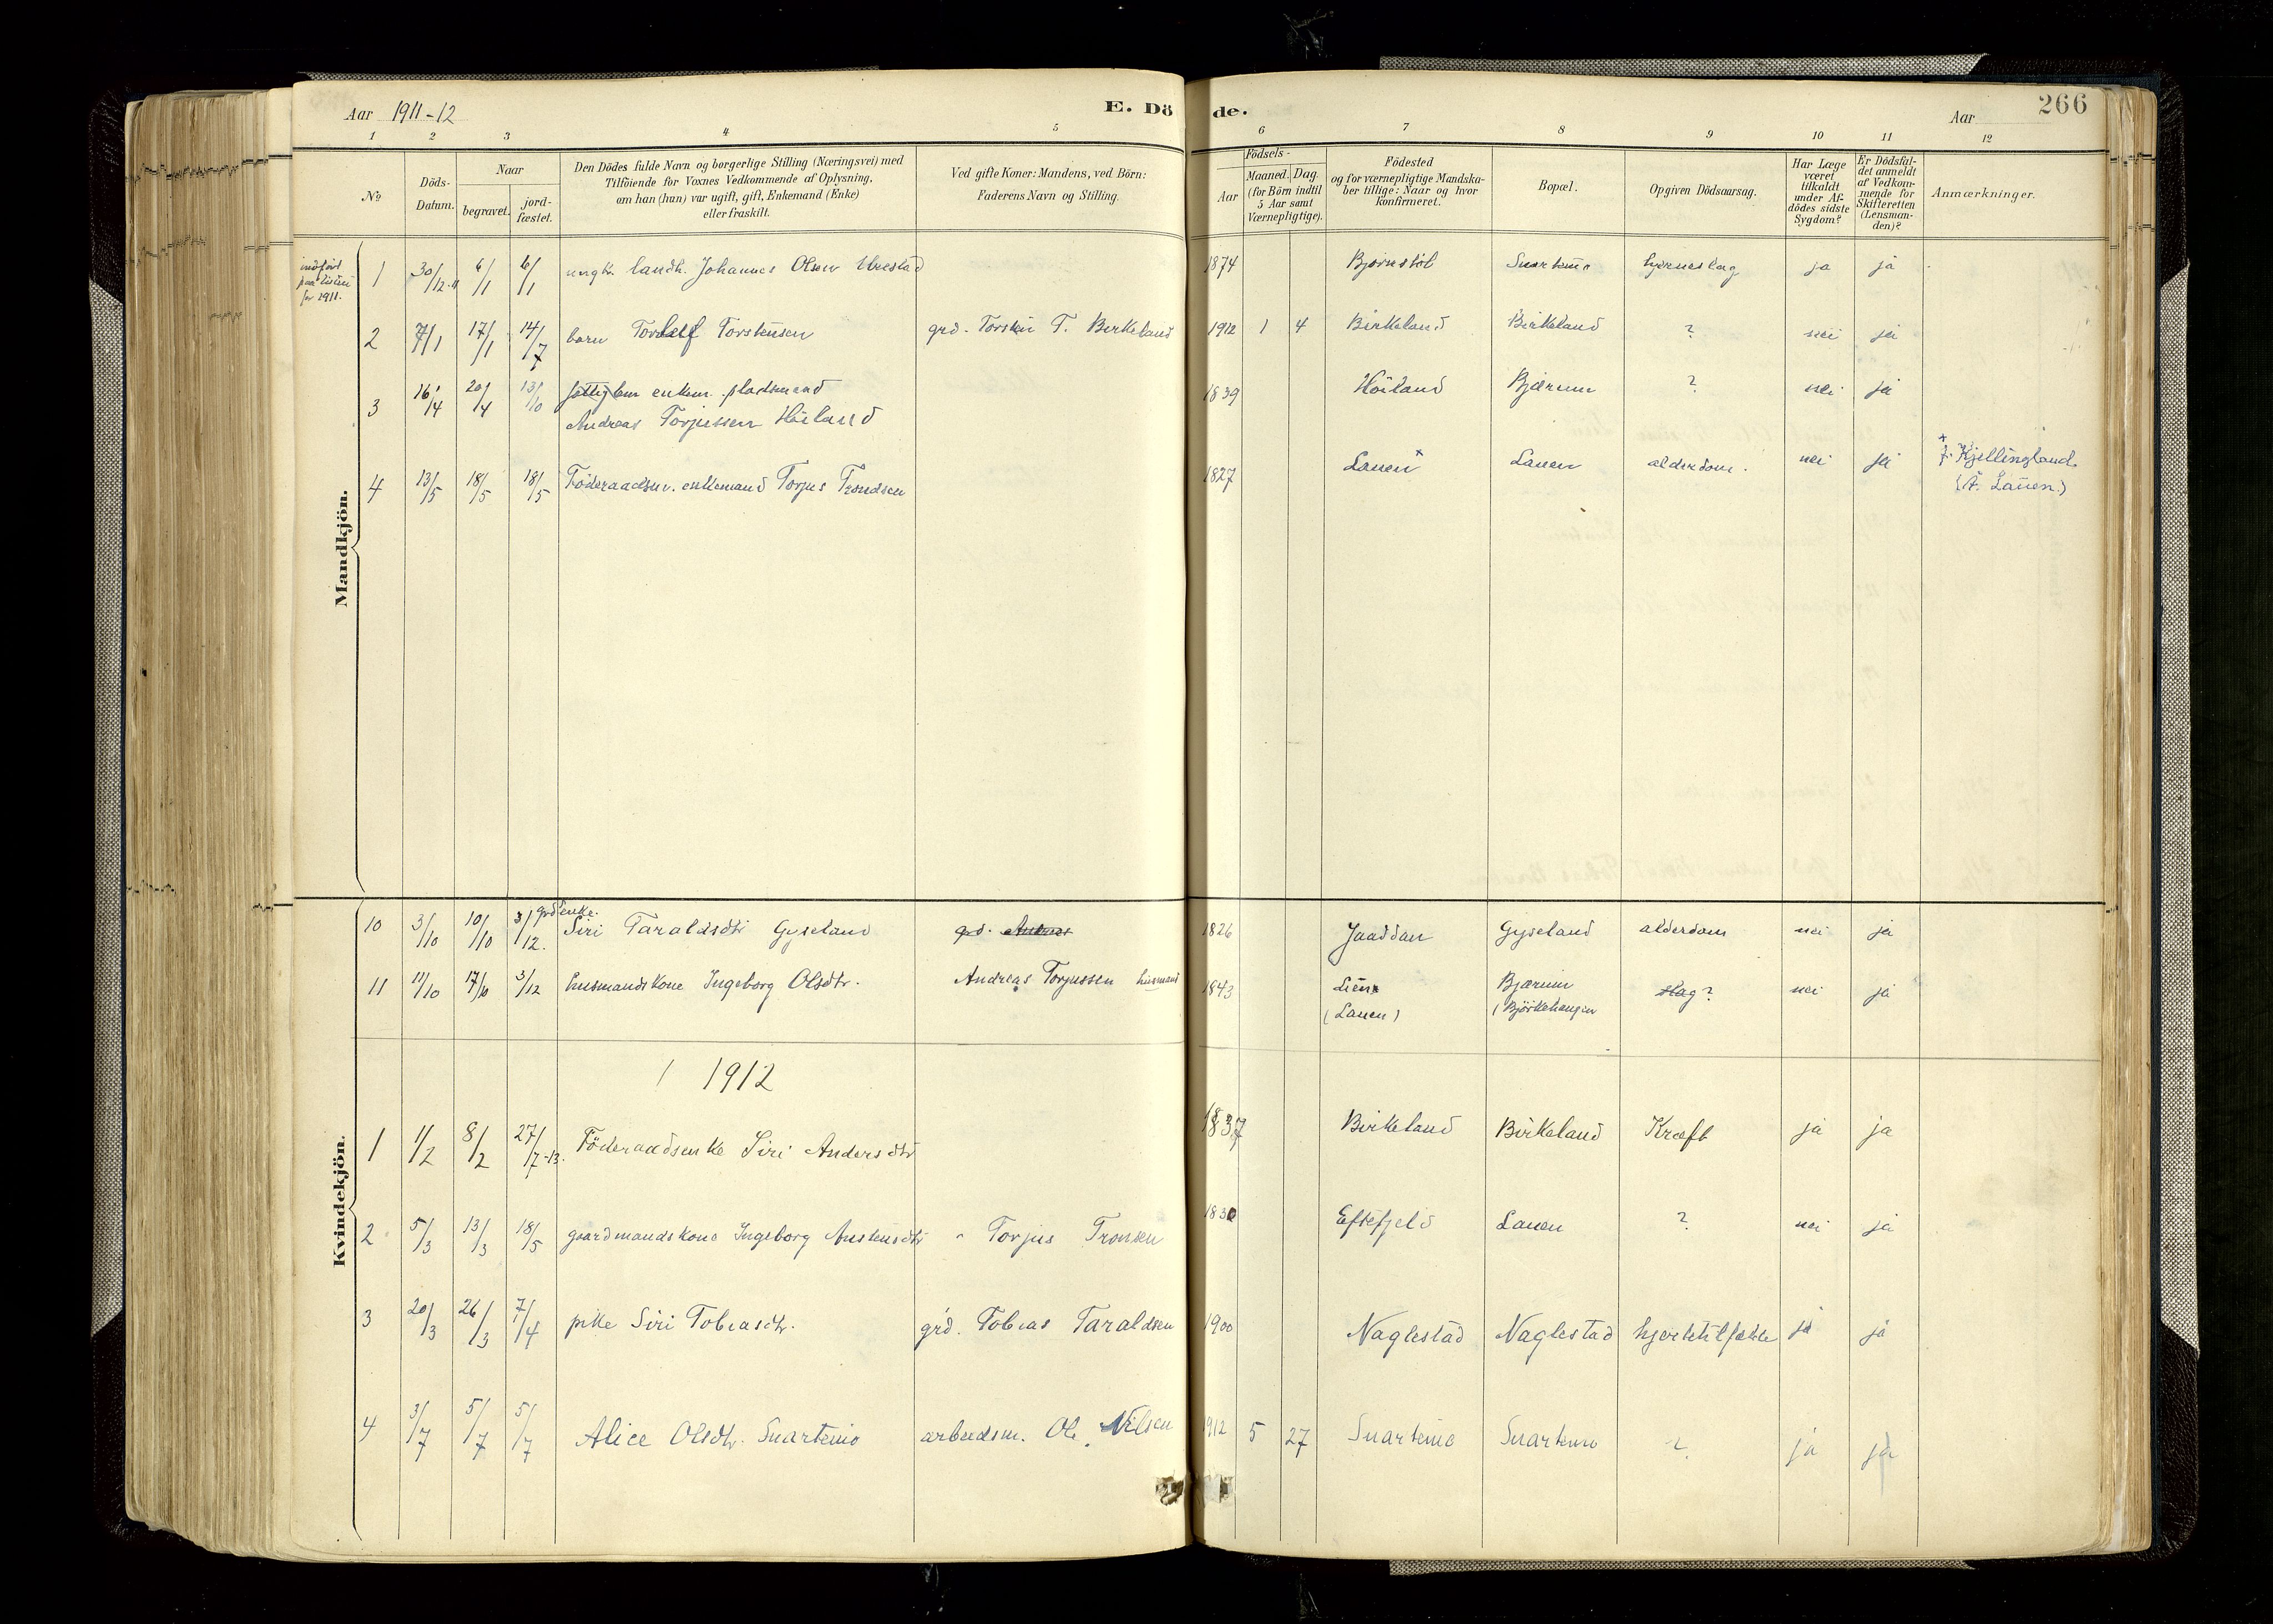 Aar 1911-12
E. Döde.
Aar
266
1 2 3 4 5 6 7 8 9 10 11 12
№
Döds-Datum.
Naar
begravet.
jord-fæstet.
Den Dödes fulde Navn og borgerlige Stilling (Næringsvei) med
Tilföiende for Voxnes Vedkommende af Oplysning,
om han (hun) var ugift, gift, Enkemand (Enke)
eller fraskilt.
Ved gifte Koner: Mandens, ved Börn:
Faderens Navn og Stilling.
Födsels-
Aar
Maaned. Dag.
(for Börn indtil
5 Aar samt
Værnepligtige).
Födested
og for værnepligtige Mandska-
ber tillige: Naar og hvor
konfirmeret.
Bopæl.
Opgiven Dödsaarsag.
Har Læge
været
tilkaldt
under Af-
dödes sidste
Sygdom?
Er Dödsfal-
det anmeldt
af Vedkom-
mende for
Skifteretten
(Lensman-
den)?
Anmærkninger.
Mandkjön.
indført
paa listen
for 1911.
1 30/12-11 6/1 6/1 ungk. landh. Johannes Olsen Urestad 1874 Bjørnstøl Snartemo hjerneslag ja ja
2 7/1 17/1 14/7 barn Tordleif Torstensen grd. Torstein T. Birkeland 1912 1 4 Birkeland Birkeland ? nei ja
3 16/4 20/4 13/10 fattiglem enkem. pladsmand
Andreas Torjussen Höiland 1839 Höiland Bjærum ? nei ja
4 13/5 18/5 18/5 Föderaadsm. enkemand Torjus Trondsen 1827 Lauen+ Lauen alderdom. nei ja
+ f. Kjellingland.
(i. Lauen.)
Kvindekjön.
10 3/10 10/10 3/12. grd enke.
Siri Taraldsdtr Gyseland grd. 1826 Jaaddan Gyseland alderdom nei ja
11 11/10 17/10 3/12 husmandskone Ingeborg Olsdtr. Andreas Torjussen husmand 1843 Lien
(Lauen) Bjærum
(Björkehaugen slag? nei ja
1912
1 1/2 8/2 27/7-13. Föderaadsenke Siri Andersdtr 1837 Birkeland Birkeland Kræft ja ja
2 5/3 13/3 18/5 gaardmandskone Ingeborg Austensdtr " Torjus Tronsen 1830 Eftefjeld Lauen ? nei ja
3 20/3 26/3 7/4 pike Siri Tobiasdtr. grd. Tobias Taraldsen 1900 Naglestad Naglestad hjertetilfælde ja ja
4 3/7 5/7 5/7 Alice Olsdtr. Snartemo arbeidsm. Ole Nilsen 1912 5 27 Snartemo Snartemo ? ja ja